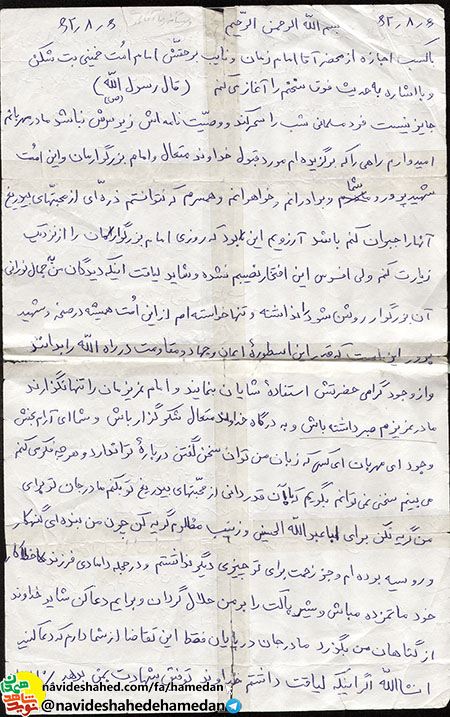 ۶۲٫۸٫۶ بسم الله الرحمن الرحیم ۶۲٫۸٫۶
باکسب اجازه از محضر آقا امام زمان و نایب برحقش امام امت خمینی بت شکن
و با اشاره به حدیث فوق سخنم را آغاز می کنم (قال رسول الله (ص))
جایز نیست فرد مسلمانی شب را سحر کند و وصیت نامه اش زیر سرش نباشد مادر مهربانم
امیدوارم راهی را که برگزیده ام مورد قبول خداوند متعال و امام بزرگوارمان و این امت
شهید پرور و شما و برادرانم و خواهرانم و همسرم که نتوانستم ذره ای از محبتهای بیدریغ
آنها را جبران کنم باشد آرزویم این بود که روزی امام بزرگوارمان را از نزدیک
زیارت کنم ولی افسوس این افتخار نصیبم نشده و شاید لیاقت اینکه دیدگان من به جمال نورانی
آن بزرگوار روشن شود را نداشته و تنها خواسته ام از این امت همیشه در صحنه و شهید
پرور این است که قدر این اسطورهٔ ایمان و جهاد و مقاومت در راه الله را بدانند
و از وجود گرامی حضرتش استفادهٔ شایان بنمایند و امام عزیزمان را تنها نگذارند
مادر عزیزم صبر داشته باش و به درگاه خداوند متعال شکرگذار باش و شما ای آرام بخش
وجود ای مهربان ای کسی که زبان من توان سخن گفتن دربارهٔ تو را ندارد و هر چه فکر می کنم
می بینم سخنی نمی توانم بگویم که با آن قدردانی از محبتهای بیدریغ تو بکنم مادر جان تو برای
من گریه نکن برای اباعبدالله الحسین و زینب مظلوم گریه کن چون من بنده ای گنهکار
و روسیه بوده ام و جز زحمت برای تو چیزی دیگر نداشتم و در حجله دامادی فرزند خطاکار
خود ماتمزده مباش و شیر پاکت را بر من حلال گردان و برایم دعا کن شاید خداوند
از گناهان من بگذرد مادر جان در پایان فقط این تقاضا از شما دارم که دعا کنید
انشاالله اگر اینکه لیاقت داشتم خداوند توفیق شهادت بمن بدهد
navideshahed.com/fa/hamedan
@navideshahedehamedan